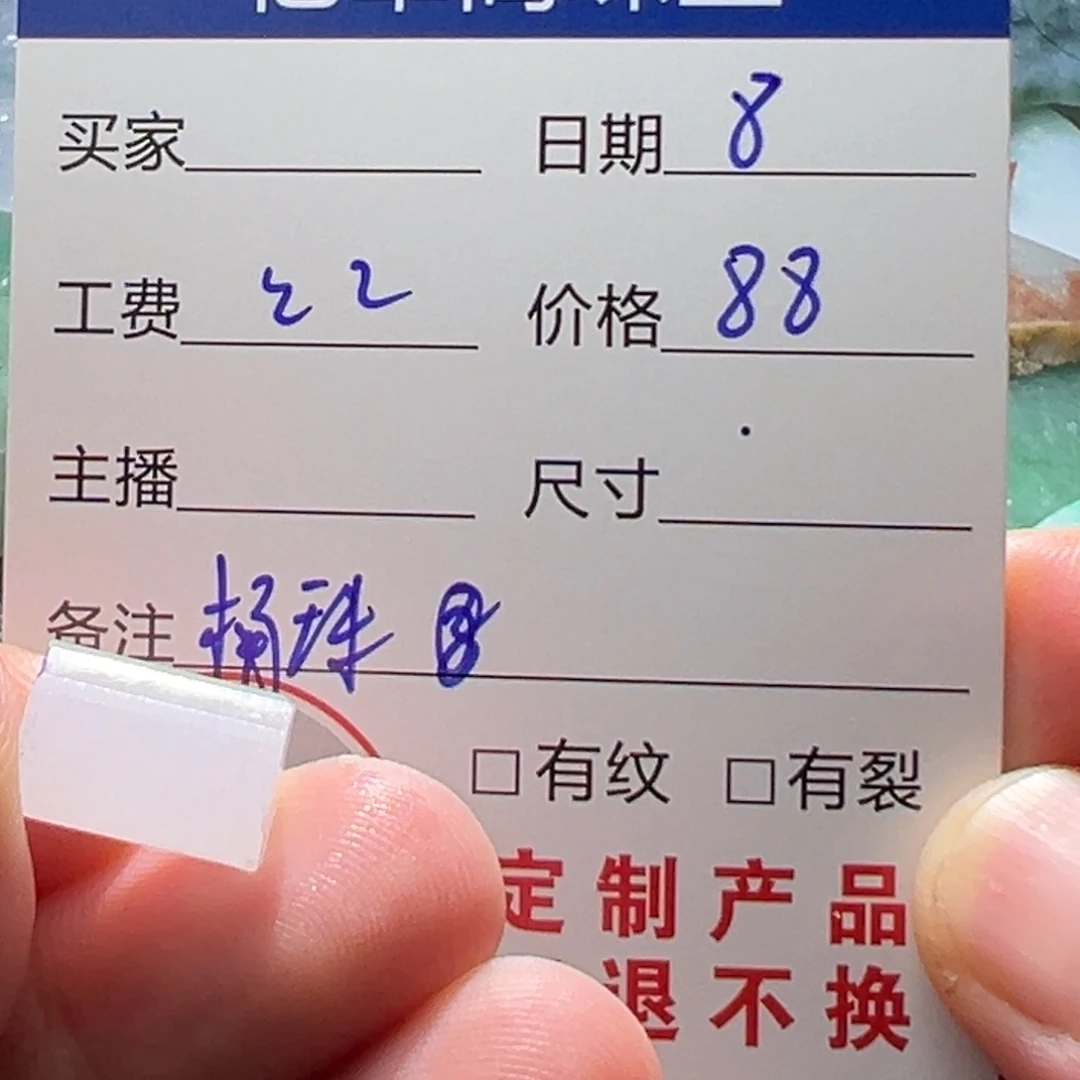 买家 日期 8
工费 22 价格 88
主播 尺寸
备注 珠
□有纹 □有裂
定制产品
退不换